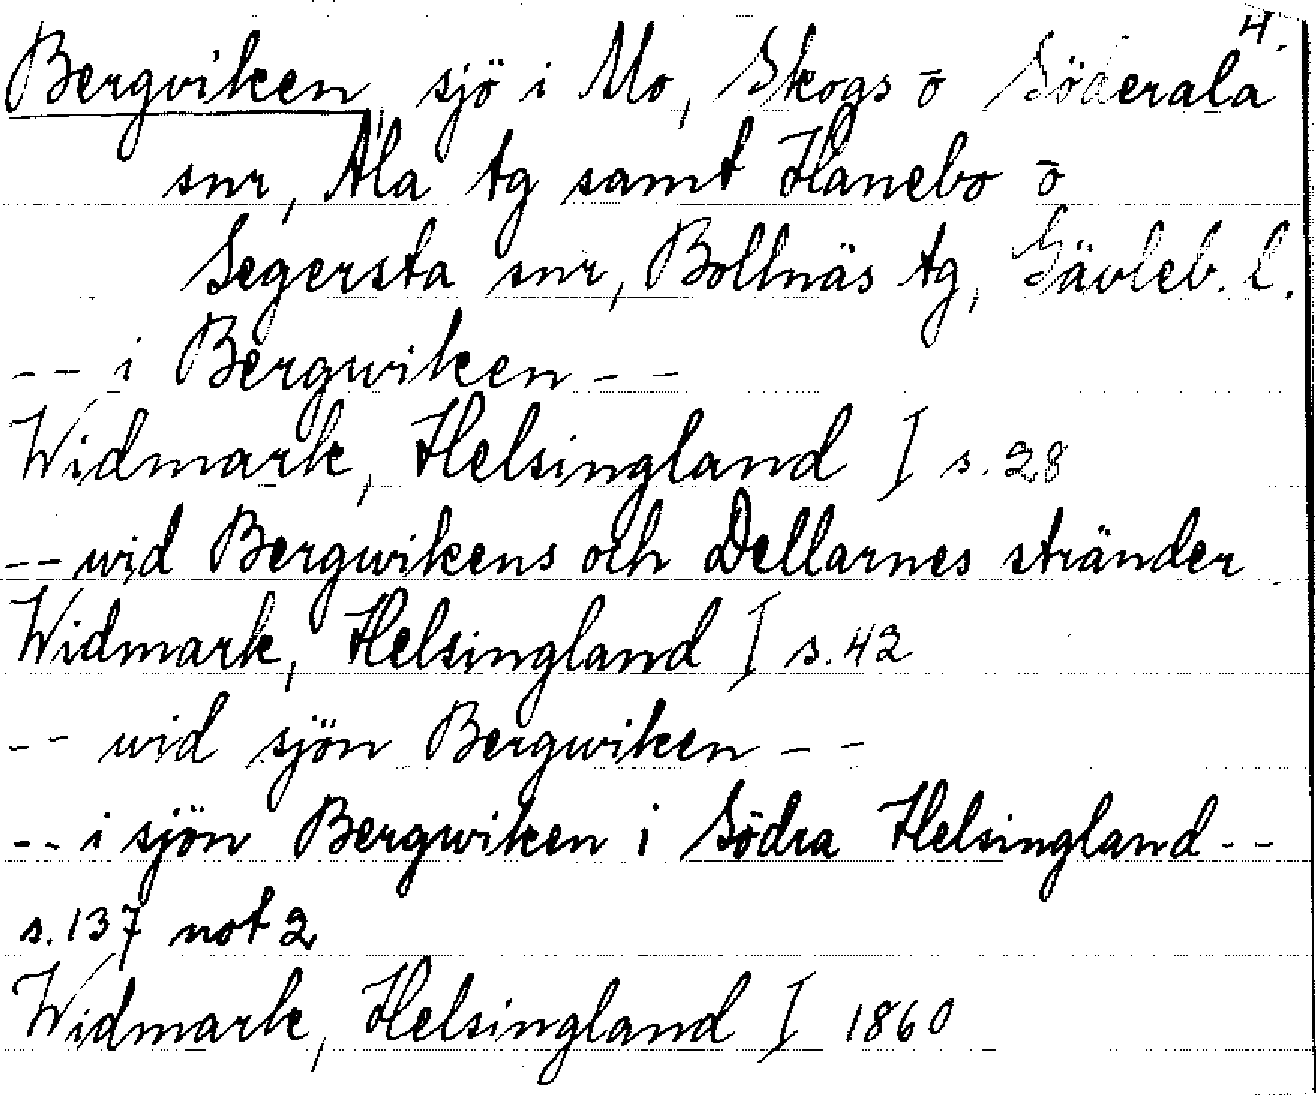 4.
Bergviken, sjö i Mo, Skogs ō Söderala
snr, Ala tg samt Hanebo ō
Segersta snr, Bollnäs tg, Gävleb. l.
-- i Bergwiken --
Widmark, Helsingland I s. 28
-- wid Bergwikens och Dellarnes stränder
Widmark, Helsingland I s. 42
-- wid sjön Bergwiken --
-- i sjön Bergwiken i Södra Helsingland --
s. 137 not 2
Widmark, Helsingland I 1860